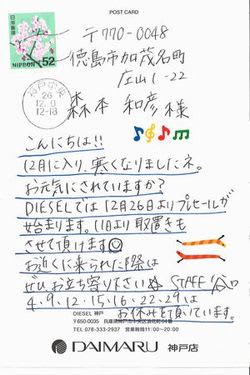 POST CARD
日本郵便
NIPPON 52
〒770-0048
徳島市加茂名町
庄山1-22
森本 和彦 様
神戸中央
26
12.9
12-18
こんにちは!!
12月に入り、寒くなりましたネ。
お元気にされていますか?
DIESELでは12月26日よりプレセールが
始まります。11日より取置きも
させて頂けます
お近くに来られた際は
ぜひお立ち寄り下さい STAFF 谷口
4.9.12.15.16.22.29は
お休みを頂いています。
DIESEL 神戸
〒650-0035 兵庫県神戸市中央区浪花町64番
TEL 078-333-2937 営業時間11:00~20:00
DAIMARU 神戸店